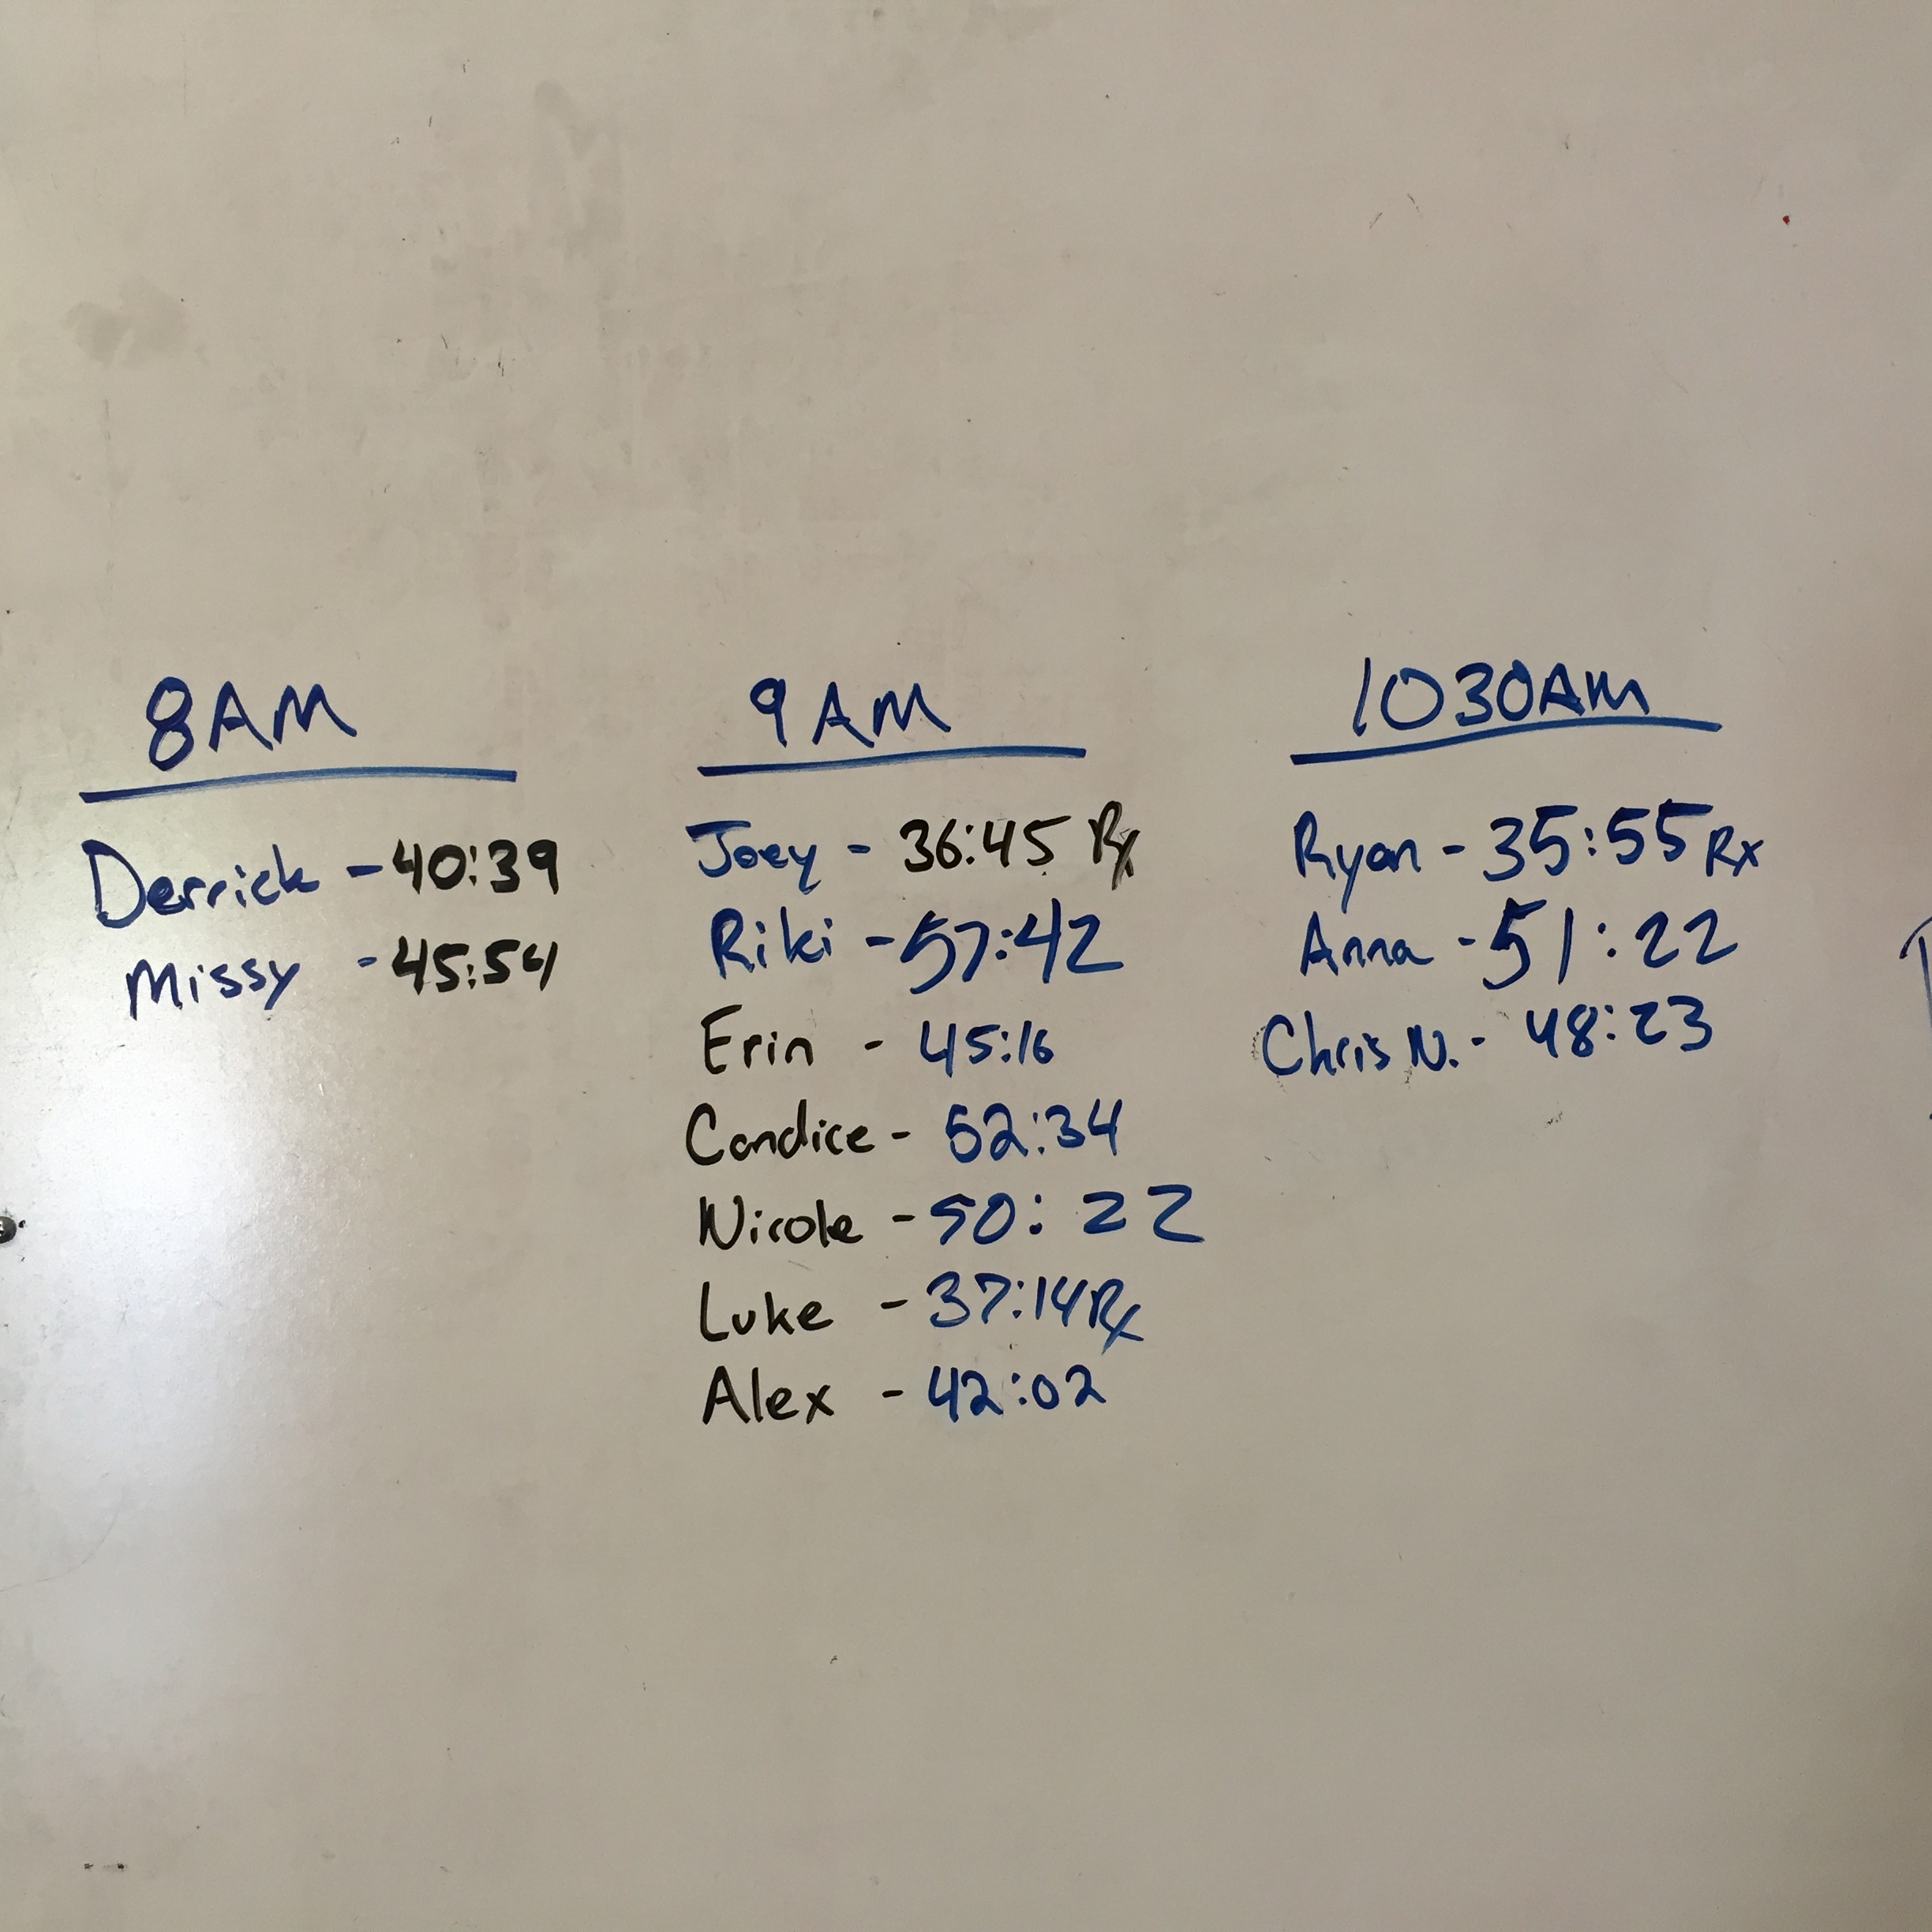 8AM
Derrick - 40:39
Missy - 45:54
9AM
Joey - 36:45 Rx
Riki - 57:42
Erin - 45:16
Candice - 52:34
Nicole - 50:22
Luke - 37:14 Rx
Alex - 42:02
1030AM
Ryan - 35:55 Rx
Anna - 51:22
Chris N. - 48:23